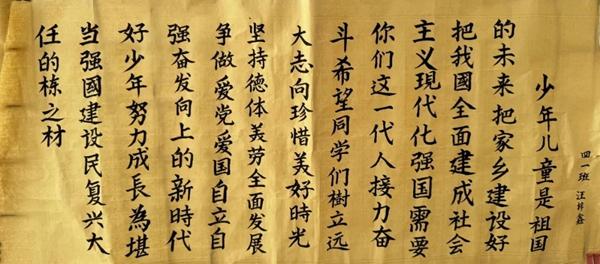 四一班 汪梓鑫
少年儿童是祖国
的未来把家乡建设好
把我國全面建成社会
主义現代化强国需要
你们这一代人接力奋
斗希望同学们樹立远
大志向珍惜美好時光
坚持德体美劳全面发展
争做爱党爱国自立自
强奋发向上的新時代
好少年努力成長為堪
当强國建设民复兴大
任的栋之材